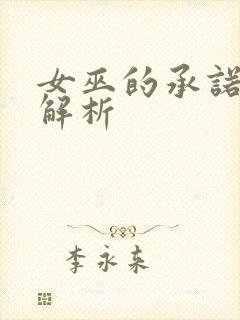 女巫的承诺
解析
李永来